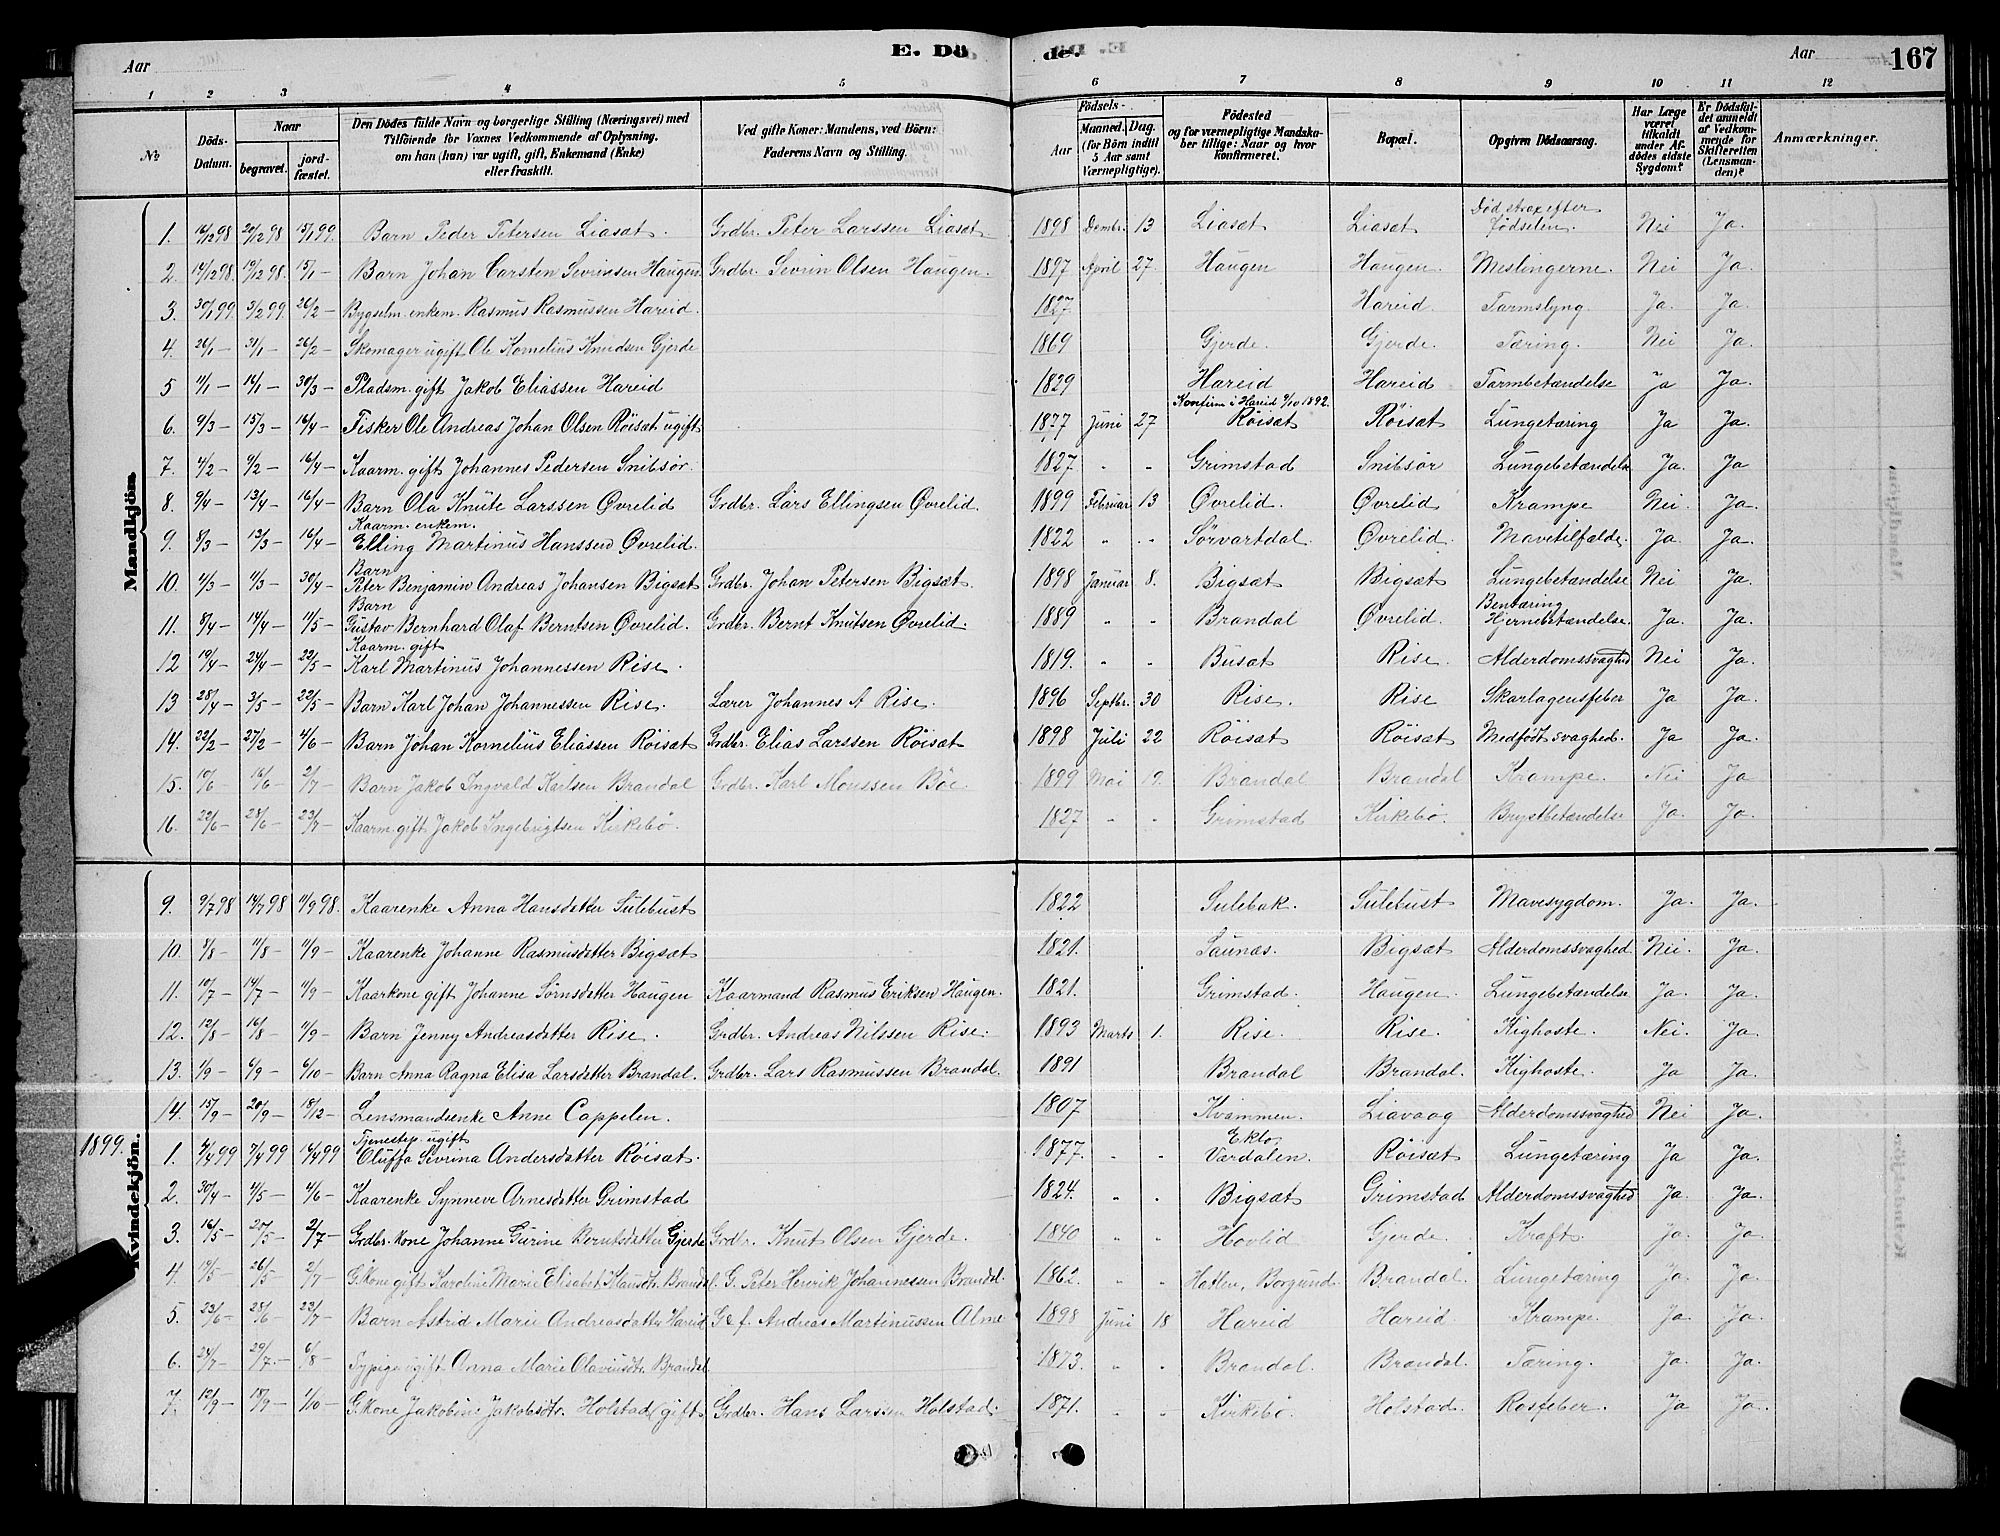 E. Döde.
167
Aar
Aar
1 2 3 4 5 6 7 8 9 10 11 12
No
Döds-Datum.
Naar begravet. jordfæstet.
Den Dödes fulde Navn og borgerlige Stilling (Næringsvei) med Tilföiende for Voxnes Vedkommende af Oplysning, om han (hun) var ugift, gift, Enkemand (Enke) eller fraskilt.
Ved gifte Koner: Mandens, ved Börn: Faderens Navn og Stilling.
Födsels-
Aar
Maaned. Dag. (for Börn indtil 5 Aar samt Værnepligtige).
Födested og for værnepligtige Mandskaber tillige: Naar og hvor konfirmeret.
Bopæl.
Opgiven Dödsaarsag.
Har Læge været tilkaldt under Afdödes sidste Sygdom?
Er Dödsfaldet anmeldt af Vedkommende for Skifteretten (Lensmanden)?
Anmærkninger.
Mandkjön
1. 16/12 98 20/12 98 15/1 99. Barn Peder Petersen Liasæt. Grdbr. Peter Larssen Liasæt 1898 Dcmbr. 13 Liasæt Liasæt Død strax efter Fødselen. Nei Ja.
2. 14/12 98. 19/12 98. 15/1 – Barn Johan Carsten Sevrinsen Haugen Grdbr. Sevrin Olsen Haugen. 1897 April 27. Haugen Haugen. Meslingerne. Nei Ja.
3. 30/1 99. 3/2 99. 26/2 – Bygselm. enkem. Rasmus Rasmussen Hareid. 1827. Hareid. Tarmslyng. Ja. Ja.
4. 26/1 – 31/1 – 26/2 – Skomager ugift Ole Kornelius Knudsen Gjerde 1869 Gjerde. Gjerde. Tæring. Nei Ja.
5 11/1 – 14/1 – 30/3 – Pladsm. gift Jakob Eliassen Hareid 1829 Hareid Hareid Tarmbetændelse Ja Ja.
6. 9/3 – 15/3 – 16/4 – Fisker Ole Andreas Johan Olsen Röisæt ugift 1877 Juni 27 Konfirm. i Hareid 9/10 1892. Röisæt Röisæt Lungetæring Ja Ja.
7. 4/2 – 9/2 – 16/4 – Kaarm. gift Johannes Pedersen Snibsör. 1827. " " Grimstad Snibsör Lungebetændelse Ja. Ja
8. 9/4 – 13/4 – 16/4 – Barn Ola Knute Larssen Øvrelid Grdbr. Lars Ellingsen Øvrelid. 1899 Februar 13 Øvrelid. Øvrelid Krampe Nei. Ja.
9. 8/3 – 13/3 – 16/4 – Kaarm. enkem. Elling Martinus Hanssen Øvrelid. 1822 " " Sörvartdal. Øvrelid. Mavetilfælde. Ja. Ja.
10. 4/3 – 11/3 – 30/4 – Barn Peter Benjamin Andreas Johansen Bigsæt Grdbr. Johan Petersen Bigsæt. 1898 Januar 8. Bigsæt Bigsæt Lungebetændelse Nei Ja.
11. 8/4 – 14/4 – 11/5 – Barn Gustav Bernhard Olaf Berntsen Øvrelid. Grdbr. Bernt Knutsen Øvrelid. 1889 " " Brandal Øvrelid. Bentæring Hjernebetændelse. Ja. Ja.
12 19/4 – 24/4 – 22/5 – Kaarm. gift Karl Martinus Johannessen Rise. 1819. " " Busæt Rise. Alderdomssvaghed Nei Ja.
13 28/4 – 3/5 – 22/5 – Barn Karl Johan Johannessen Rise. Lærer Johannes A Rise. 1896 Septbr. 30 Rise. Rise Skarlagensfeber Ja Ja.
14. 22/2 – 27/2 – 4/6 – Barn Johan Kornelius Eliassen Röisæt Grdbr. Elias Larssen Röisæt 1898 Juli 22 Röisæt Röisæt Medfödt svaghed. Ja Ja.
15. 10/6 – 16/6 – 2/7 – Barn Jakob Ingvald Karlsen Brandal Grdbr. Karl Monssen Böe. 1899 Mai 19. Brandal Brandal Krampe. Nei Ja
16. 22/6 – 28/6 – 23/7 – Kaarm. gift Jakob Ingebrigtsen Kirkebö. 1827 " " Grimstad Kirkebö. Brystbetændelse Ja. Ja.
Kvindekjön.
9. 9/7 98 14/7 98 11/9 98. Kaarenke Anna Hansdatter Sulebust 1822 Sulebak. Sulebust Mavesygdom. Ja. Ja.
10. 8/8 – 11/8 – 11/9 – Kaarenke Johanne Rasmusdatter Bigsæt 1821. Saunæs. Bigsæt Alderdomssvaghed. Nei. Ja.
11. 10/7 – 14/7 – 11/9 – Kaarkone gift Johanne Sörnsdatter Haugen Kaarmand Rasmus Eriksen Haugen. 1821. Grimstad. Haugen. Lungebetændelse Ja. Ja.
12. 12/8 – 16/8 – 11/9 – Barn Jenny Andreasdatter Rise. Grdbr. Andreas Nilssen Rise. 1893 Marts 1. Rise. Rise. Kighoste. Nei. Ja.
13. 1/9 – 6/9 – 6/10 – Barn Anna Ragna Elisa Larsdatter Brandal. Grdbr. Lars Rasmussen Brandal. 1891 Brandal Brandal. Kighoste. Ja Ja.
14. 15/9 – 20/9 – 18/12 – Lensmandsenke Anne Cappelen. 1807 Kvammen. Liavaag Alderdomssvaghed Nei Ja.
1899. 1. 4/4 99 7/4 99 16/4 99 Tjenestep. ugift Oluffa Sevrina Andersdatter Röisæt. 1877. " " Ekto, Værdalen. Röisæt Lungetæring Ja Ja.
2. 30/4 – 4/5 – 4/6 – Kaarenke Synneve Arnesdatter Grimstad 1824. " " Bigsæt Grimstad Alderdomssvaghed Ja. Ja.
3. 16/5 – 20/5 – 2/7 – Grdbr. kone Johanne Gurine Berntsdatter Gjerde Grdbr. Knut Olsen Gjerde. 1840 " " Hovlid Gjerde. Kræft. Ja. Ja.
4. 19/5 – 26/5 – 2/7 – G. Kone gift Karoline Marie Elisabet Klausdtr. Brandal. G. Peter Henrik Johannessen Brandal. 1862. " " Hatlen, Borgund Brandal. Lungetæring Ja. Ja.
5. 23/6 – 28/6 – 23/7 – Barn Astrid Marie Andreasdatter Hareid G & f. Andreas Martinussen Alme 1898 Juni 18 Hareid Hareid. Krampe. Ja Ja.
6. 24/7 – 29/7. – 6/8 – Sypige ugift Anna Marie Olaviusdtr. Brandal 1873. " " Brandal. Brandal. Tæring. Ja. Ja.
7. 12/9 – 18/9 – 1/10 – G. Kone Jakobine Jakobsdtr. Holstad (gift Grdbr. Hans Larssen Holstad. 1871. " " Kirkebö. Holstad. Rosfeber. Ja Ja.